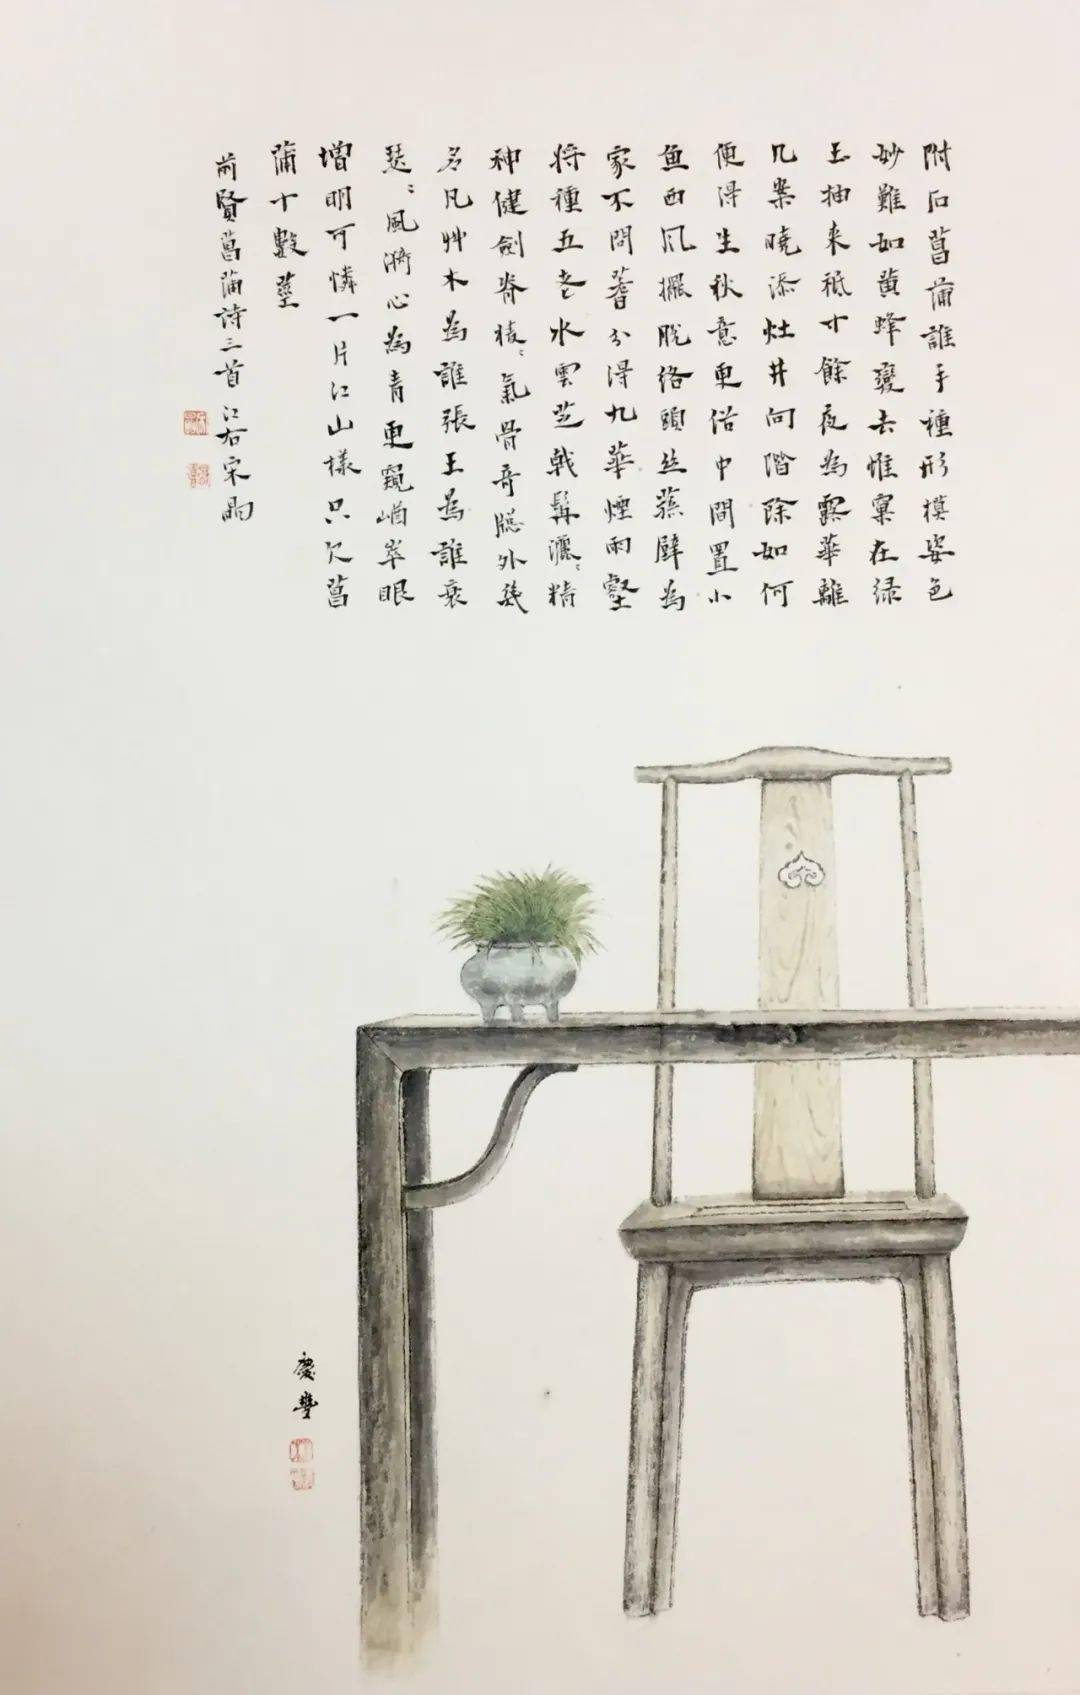 附石菖蒲誰手種形模姿色
妙難如黄蜂變去惟窠在绿
玉抽来祗寸餘夜為露華離
几案曉添灶井向階除如何
便得生秋意更借中間置小
魚西风擺脫络頭丝蘚壁為
家不問蓍分得九華煙雨壑
將種五老水雲芝戟髯灑：精
神健劍脊稜：氣骨奇聴外幾
多凡艸木為誰張王為誰衰
瑟：風漪心為青更窺崷崒眼
增明可憐一片江山樣只欠菖
蒲十數莖
前賢菖蒲詩三首 江右宋昫
慶豐